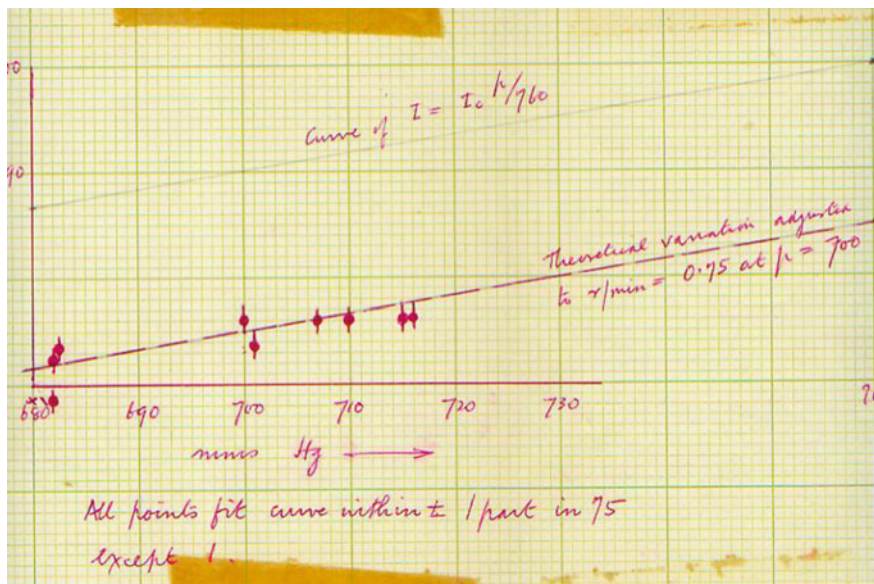 Curve of I = I₀ p/760
90
Theoretical variation adjusted
to r/min = 0.75 at p = 700
680 690 700 710 720 730
mms Hg
All points fit curve within ± 1 part in 75
except 1.